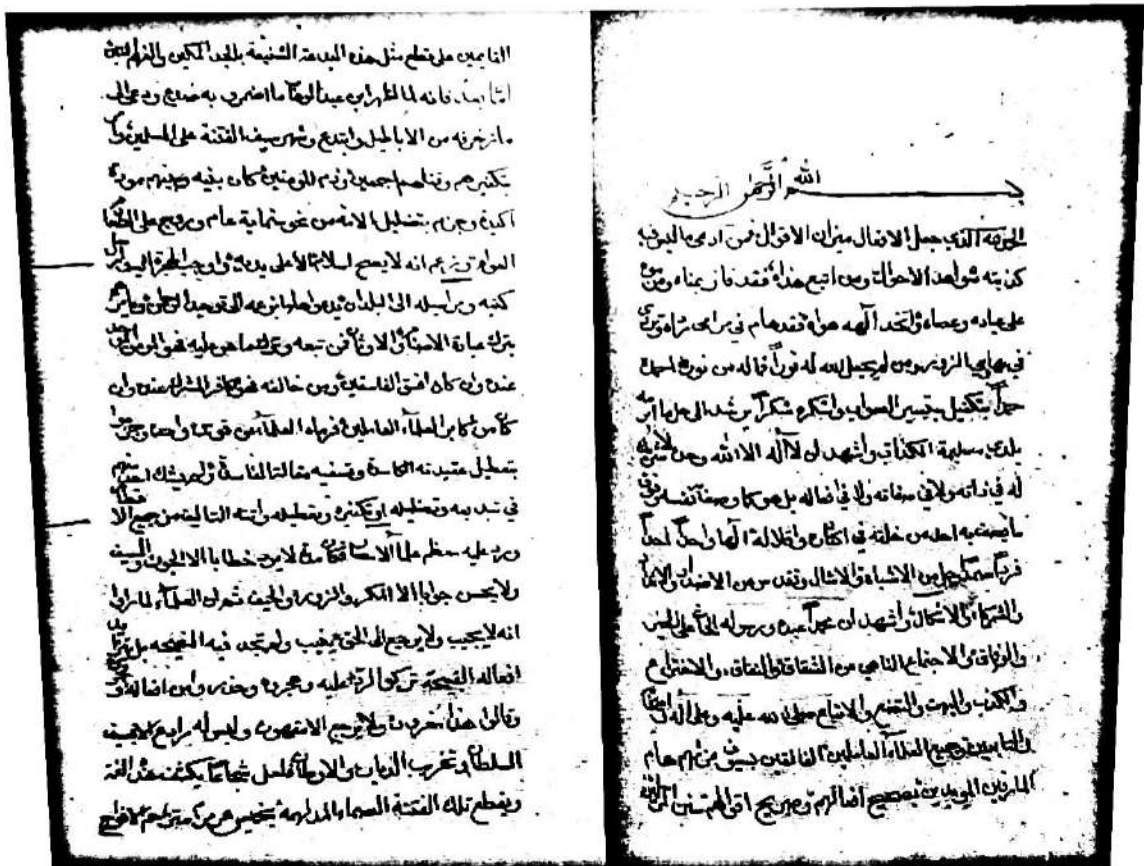 بسم الله الرحمن الرحيم
الحمد لله الذي جعل الافعال ميزان الاقوال فمن ادعى ما ليس فيه
كذبته شواهد الاحوال ومن اتبع هداه فقد فاز بمناه ومن
على عباده وعصاه واتخذ الهه هواه فقد هام في
في مهاوي الزور ومن لم يجعل الله له نوراً فماله من نور احمده
حمداً يتكفل بتيسير الصواب واشكره شكراً يرشد الى
مسيلمة الكذاب واشهد ان لا اله الا الله وحده لا شريك
له في ذاته ولا في صفاته ولا في افعاله بل هو كما وصف نفسه فوق
ما يصفه به احد من خلقه في الها واحداً احداً
فرداً صمداً جل عن الاشباه والامثال وتقدس عن الاضداد والانداد
والشركاء والاشكال واشهد ان محمداً عبده ورسوله الحاث على
والوفاق والاجتماع الناهي عن الشقاق والنفاق والاختراع
والكذب والبهت والابتداع صلى الله عليه وعلى اله واصحابه
والتابعين وجميع العلماء العاملين الفالقين بسيوف عزمهم هام
المارقين المويدين بصحيح افعالهم وصريح اقوالهم سنن
القايمين على قطع مثل هذه البدعة الشنيعة بالجد المكين والعزم المتين
اما بعد فانه لما اظهر ابن عبد الوهاب ما اضمره به صدع ودعى الى
ما زخرفه من الاباطيل وابتدع وشهر سيف الفتنة على المسلمين
بتكفيرهم وقتالهم اجمعين ولم
وجزم بتضليل الامة من نحو ستماية عام وروج على
العوام وزعم انه لا يصح اسلام الا على يديه واوجب الهجرة اليه وارسل
كتبه ومراسيله الى البلدان يدعو اهلها بزعمه الى توحيد الرحمن ويامرهم
بترك عبادة الاصنام والاوثان فمن تبعه وترك ما هو عليه فهو الموحد
عنده وان كان افسق الفاسقين ومن خالفه فهو الكافر المشرك عنده وان
كان من اكابر العلماء العاملين فرماه العلماء عن قوس واحد
بتعطيل عقيدته الكاسدة وتسفيه مقالته الفاسدة ولم يشك احد منهم
في تبديعه وتضليله او تكفيره وتعطيله واتته التاليف من جميع الاقطار
ورد عليه معظم علماء الامصار فكان لا يرى خطابا الا والسيف
ولا يحسن جوابا الا المكر والزور والحيف ثم ان العلماء لما راوا
انه لا يجيب ولا يرجع الى الحق وينيب ولم تجد فيه النصيحة بل
افعاله القبيحة تركوا الرد عليه وهجروه وحذروا من افعاله
وقالوا هذا ولا يرجع الا مقهور وليس له رادع الا سيف
السلطان تخرب الديار والاوطان فلعل شجاعا يكشف هذه الغمة
ويقطع تلك الفتنة الصماء المدلهمة